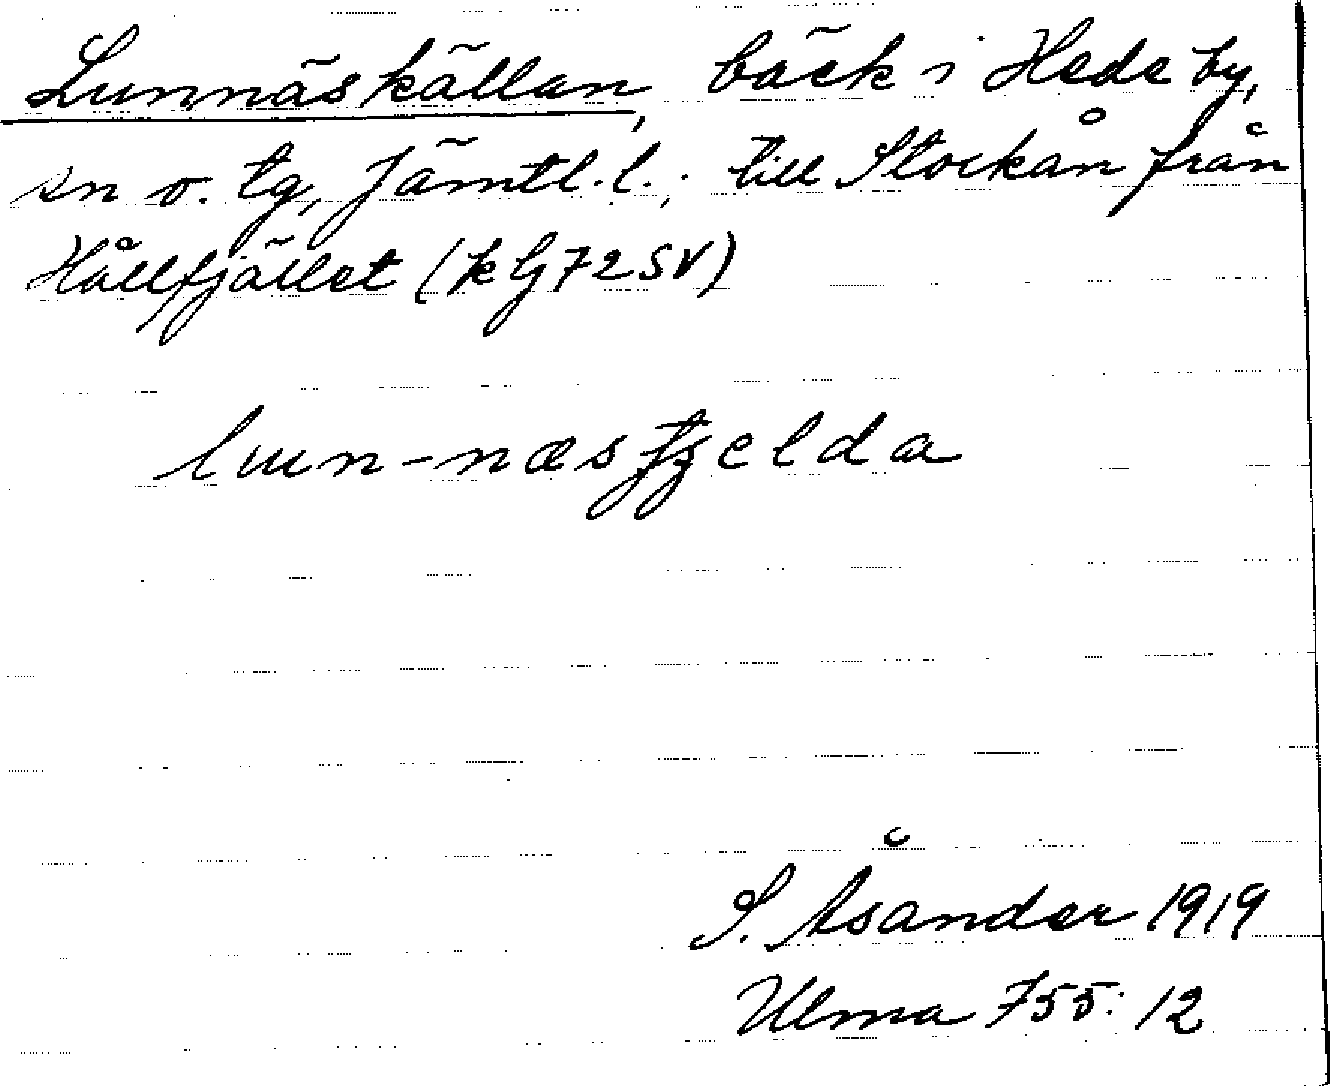 Lunnäskällan, bäck i Hede by,
sn o. tg, Jämtl. l.; till Storkån från
Hållfjället (kG72SV)
lun-næsfʒelda
S. Åsander 1919
Ulma 755:12